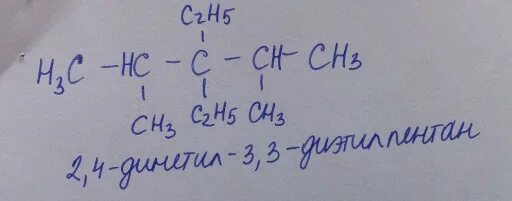 C2H5
H3C - HC - C - CH - CH3
CH3 C2H5 CH3
2,4-диметил-3,3-диэтилпентан